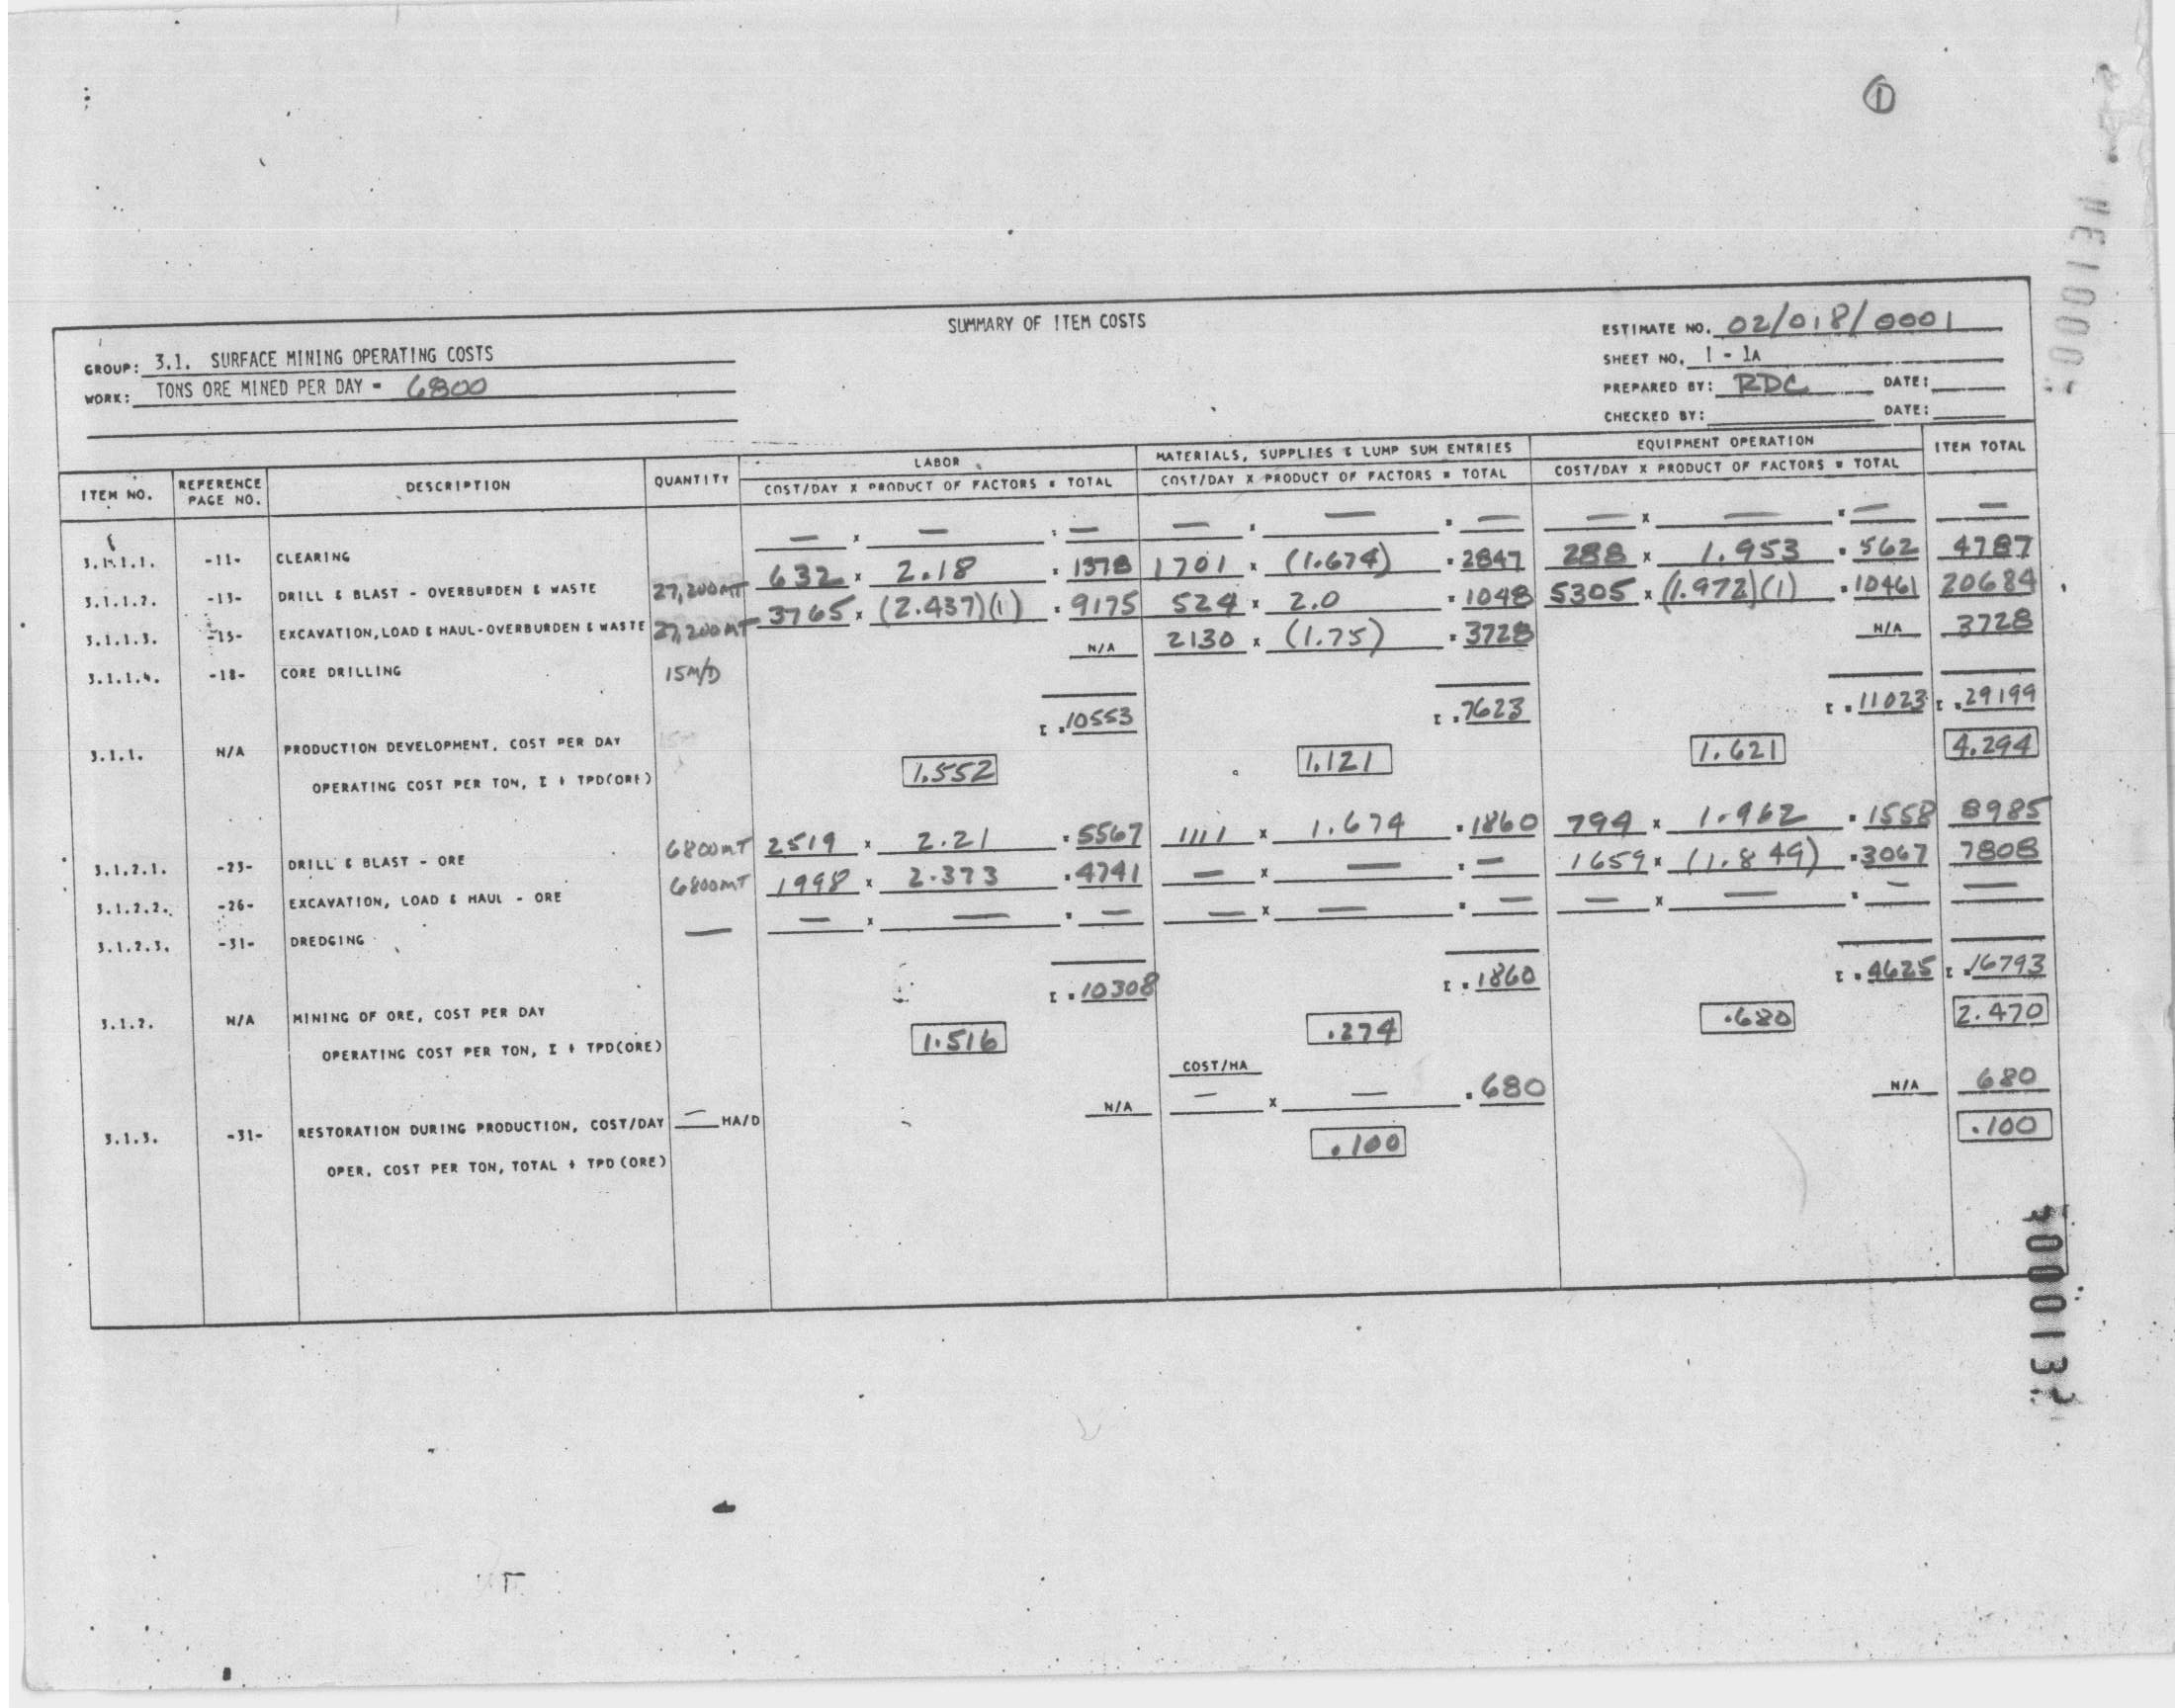 ①
SUMMARY OF ITEM COSTS
ESTIMATE NO. 02/018/0001
GROUP: 3.1. SURFACE MINING OPERATING COSTS
SHEET NO. 1 - 1A
WORK: TONS ORE MINED PER DAY = 6800
PREPARED BY: RDC DATE:
CHECKED BY: DATE:
ITEM NO. REFERENCE PAGE NO. DESCRIPTION QUANTITY LABOR MATERIALS, SUPPLIES & LUMP SUM ENTRIES EQUIPMENT OPERATION ITEM TOTAL
COST/DAY X PRODUCT OF FACTORS = TOTAL COST/DAY X PRODUCT OF FACTORS = TOTAL COST/DAY X PRODUCT OF FACTORS = TOTAL
3.1.1.1. -11- CLEARING — x — = — — x — = — — x — = — —
3.1.1.2. -13- DRILL & BLAST - OVERBURDEN & WASTE 27,200MT 632 x 2.18 = 1378 1701 x (1.674) = 2847 288 x 1.953 = 562 4787
3.1.1.3. -15- EXCAVATION, LOAD & HAUL-OVERBURDEN & WASTE 27,200MT 3765 x (2.437)(1) = 9175 524 x 2.0 = 1048 5305 x (1.972)(1) = 10461 20684
3.1.1.4. -18- CORE DRILLING 15M/D N/A 2130 x (1.75) = 3728 N/A 3728
3.1.1. N/A PRODUCTION DEVELOPMENT, COST PER DAY Σ = 10553 Σ = 7623 Σ = 11023 Σ = 29199
OPERATING COST PER TON, Σ ÷ TPD(ORE) 1.552 1.121 1.621 4.294
3.1.2.1. -23- DRILL & BLAST - ORE 6800MT 2519 x 2.21 = 5567 1111 x 1.674 = 1860 794 x 1.962 = 1558 8985
3.1.2.2. -26- EXCAVATION, LOAD & HAUL - ORE 6800MT 1998 x 2.373 = 4741 — x — = — 1659 x (1.849) = 3067 7808
3.1.2.3. -31- DREDGING — — x — = — — x — = — — x — = — —
3.1.2. N/A MINING OF ORE, COST PER DAY Σ = 10308 Σ = 1860 Σ = 4625 Σ = 16793
OPERATING COST PER TON, Σ ÷ TPD(ORE) 1.516 .274 .680 2.470
COST/HA
3.1.3. -31- RESTORATION DURING PRODUCTION, COST/DAY — HA/D N/A — x — = 680 N/A 680
OPER. COST PER TON, TOTAL ÷ TPD(ORE) .100 .100